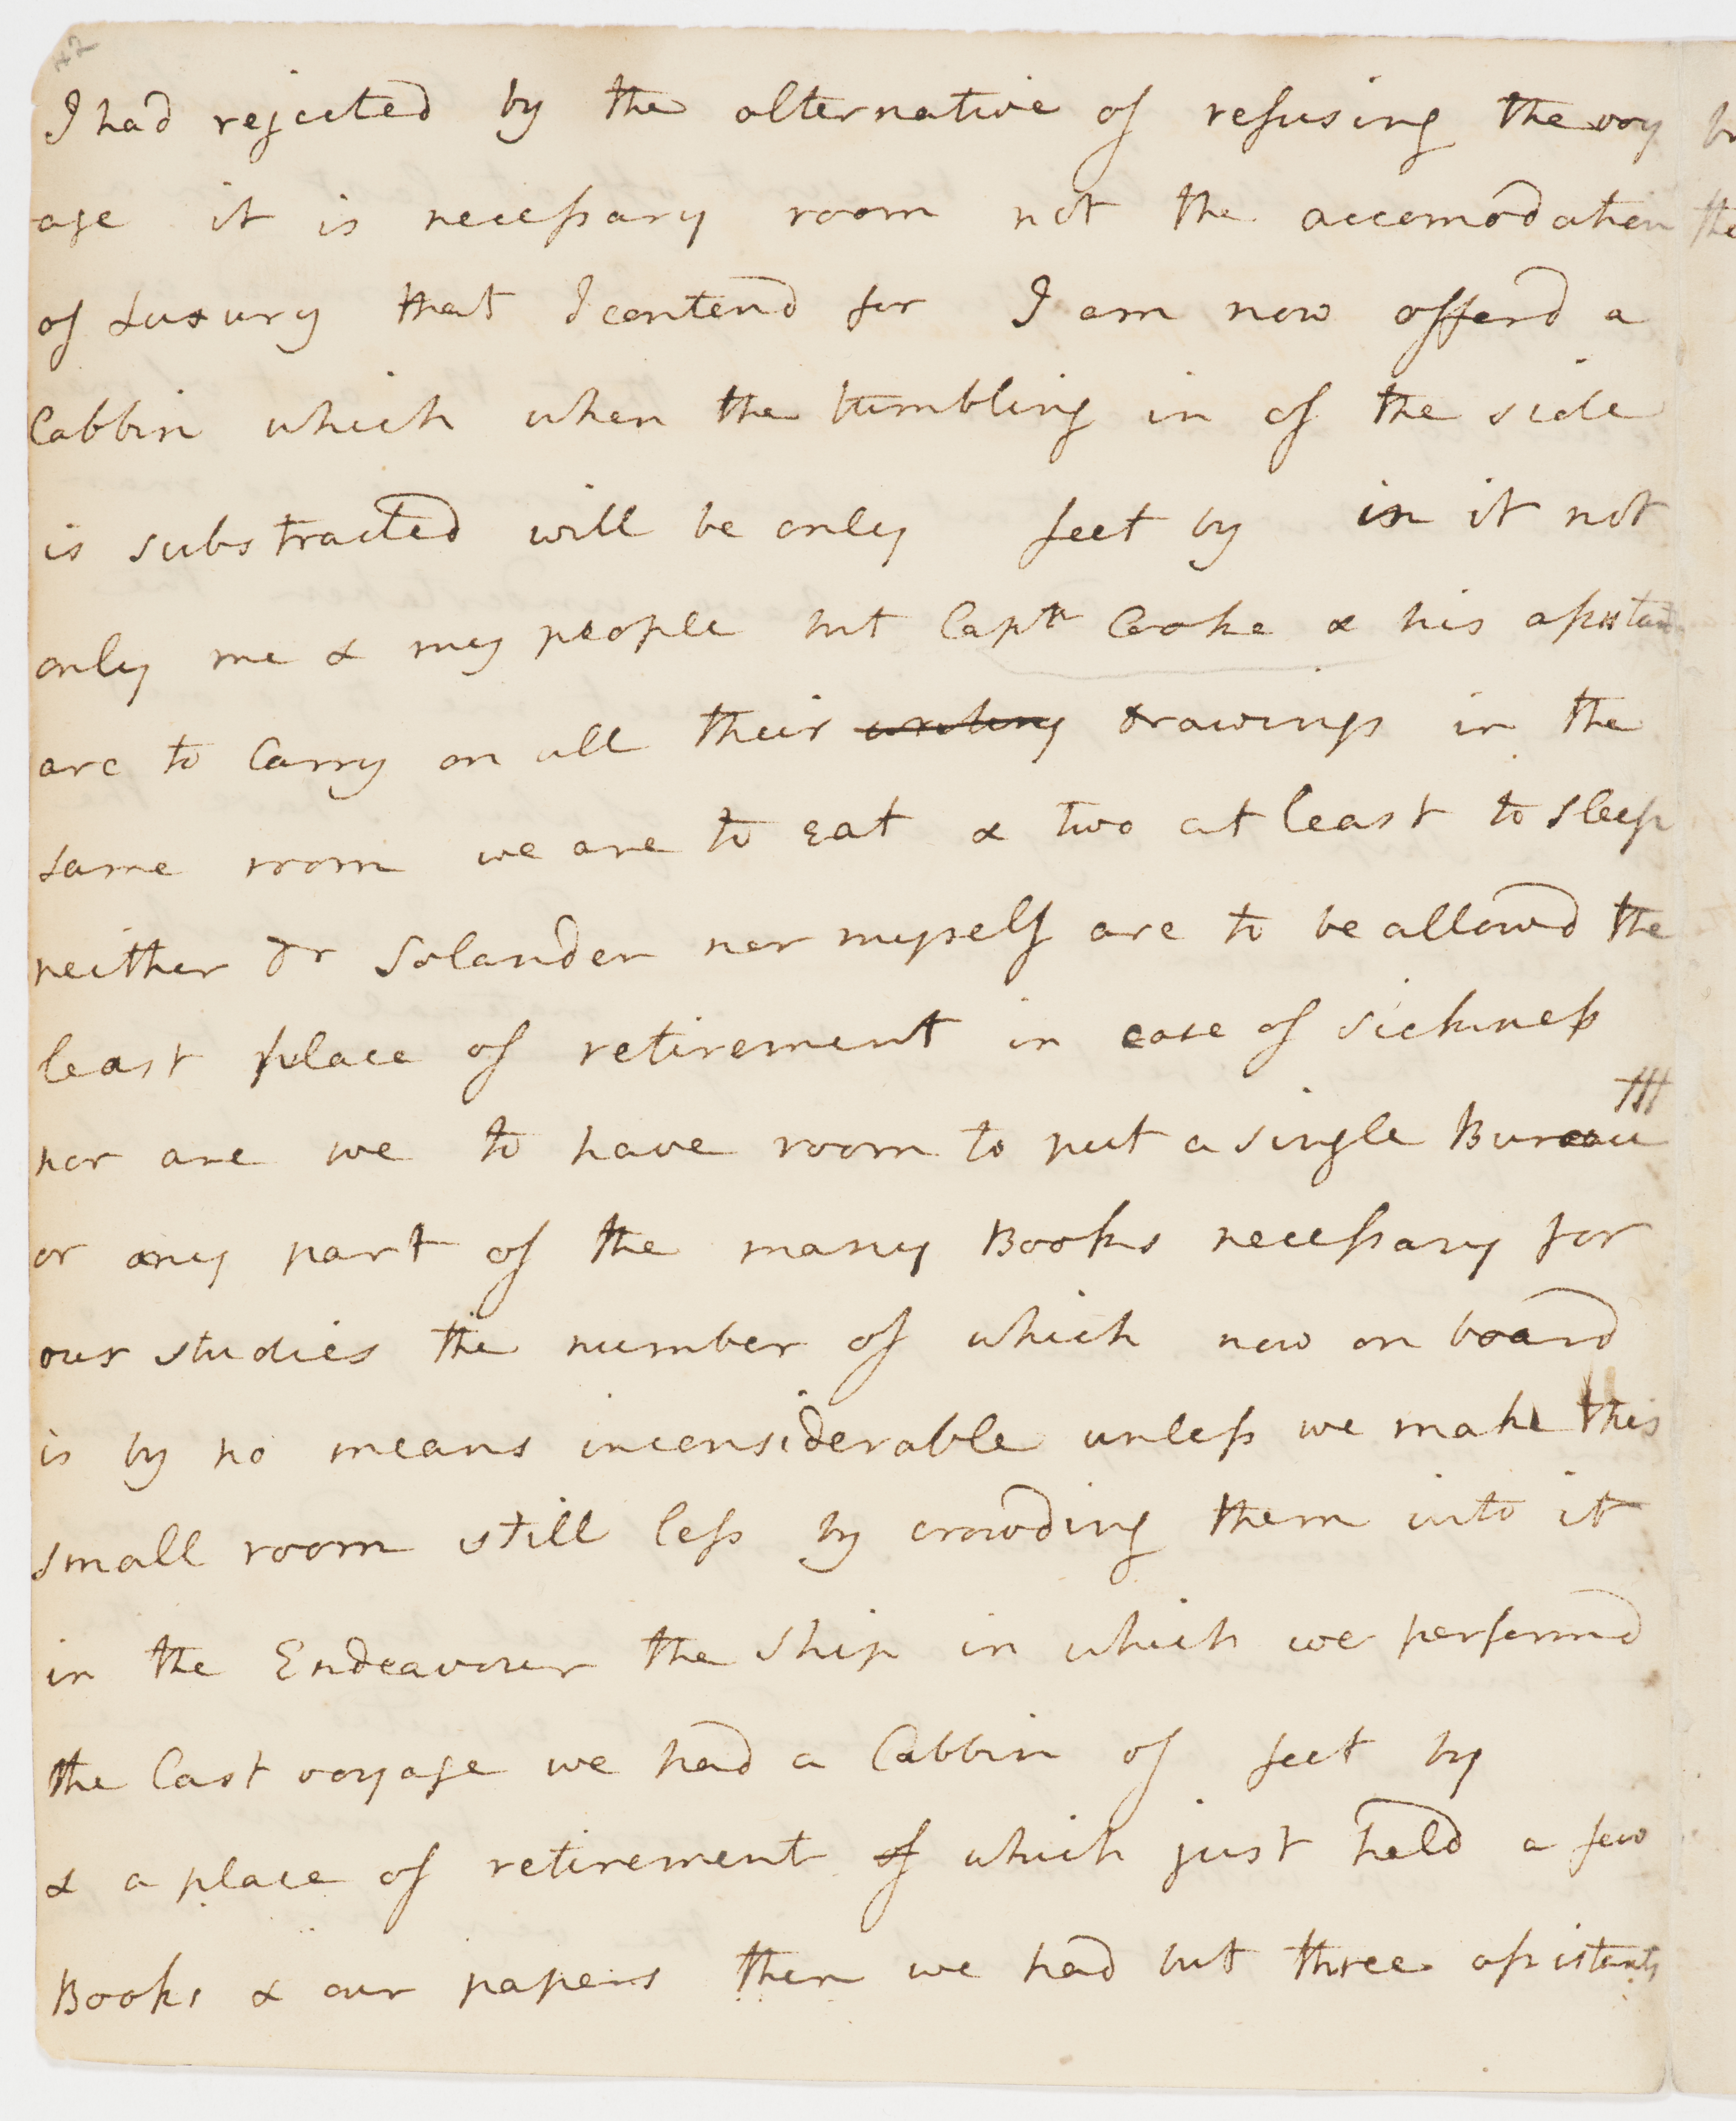 42
I had rejected by the alternative of refusing the voy
-age it is necessary room not the accomodation
of Luxury that I contend for I am now offerd a
Cabbin which when the tumbling in of the side
is substracted will be only feet by in it not
only me & my people but Captn Cooke & his assistants
are to Carry on all their writing drawings in the
same room we are to eat & two at least to sleep
neither Dr Solander nor myself are to be allowd the
least place of retirement in case of sickness
nor are we to have room to put a single Bureau
or any part of the many Books necessary for
our studies the number of which now on board
is by no means inconsiderable unless we make this
small room still less by crowding them into it
in the Endeavour the ship in which we performd
the Last voyage we had a Cabbin of feet by
& a place of retirement of which just held a few
Books & our papers then we had but three assistants